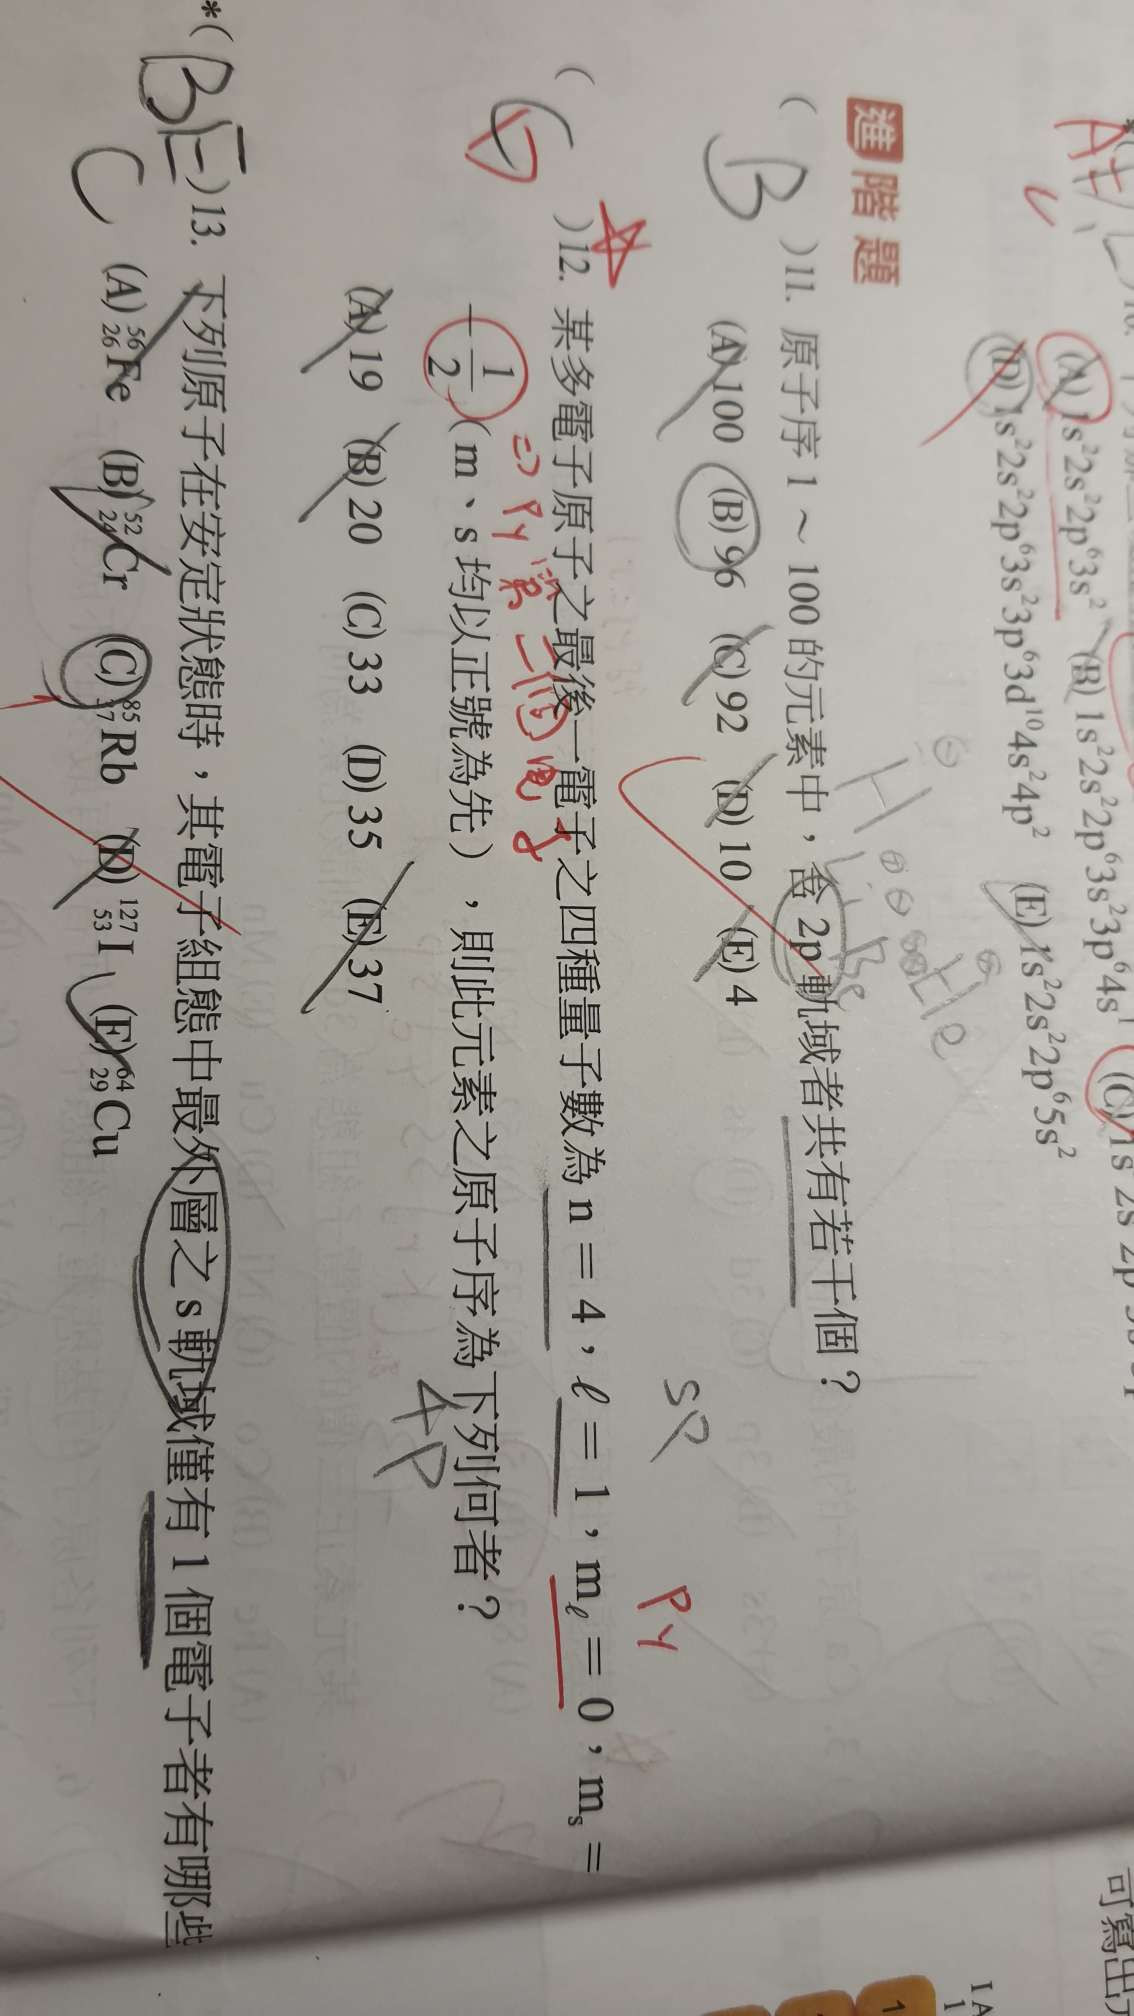 (A) 1s²2s²2p⁶3s² (B) 1s²2s²2p⁶3s²3p⁶4s¹ (C) 1s²2s²2p⁶
(D) 1s²2s²2p⁶3s²3p⁶3d¹⁰4s²4p² (E) 1s²2s²2p⁶5s²
進階題
( B )11. 原子序 1～100 的元素中，含 2p 軌域者共有若干個？
(A) 100 (B) 96 (C) 92 (D) 10 (E) 4
H He
Li Be
sp
py
( C )12. 某多電子原子之最後一電子之四種量子數為 n = 4，ℓ = 1，mℓ = 0，ms =
D
−1/2（m、s 均以正號為先），則此元素之原子序為下列何者？
⇒ py 第二個電子
4p
(A) 19 (B) 20 (C) 33 (D) 35 (E) 37
*( BE )13. 下列原子在安定狀態時，其電子組態中最外層之 s 軌域僅有 1 個電子者有哪些
C
(A) ⁵⁶₂₆Fe (B) ⁵²₂₄Cr (C) ⁸⁵₃₇Rb (D) ¹²⁷₅₃I (E) ⁶⁴₂₉Cu
可寫出
I A
1
1